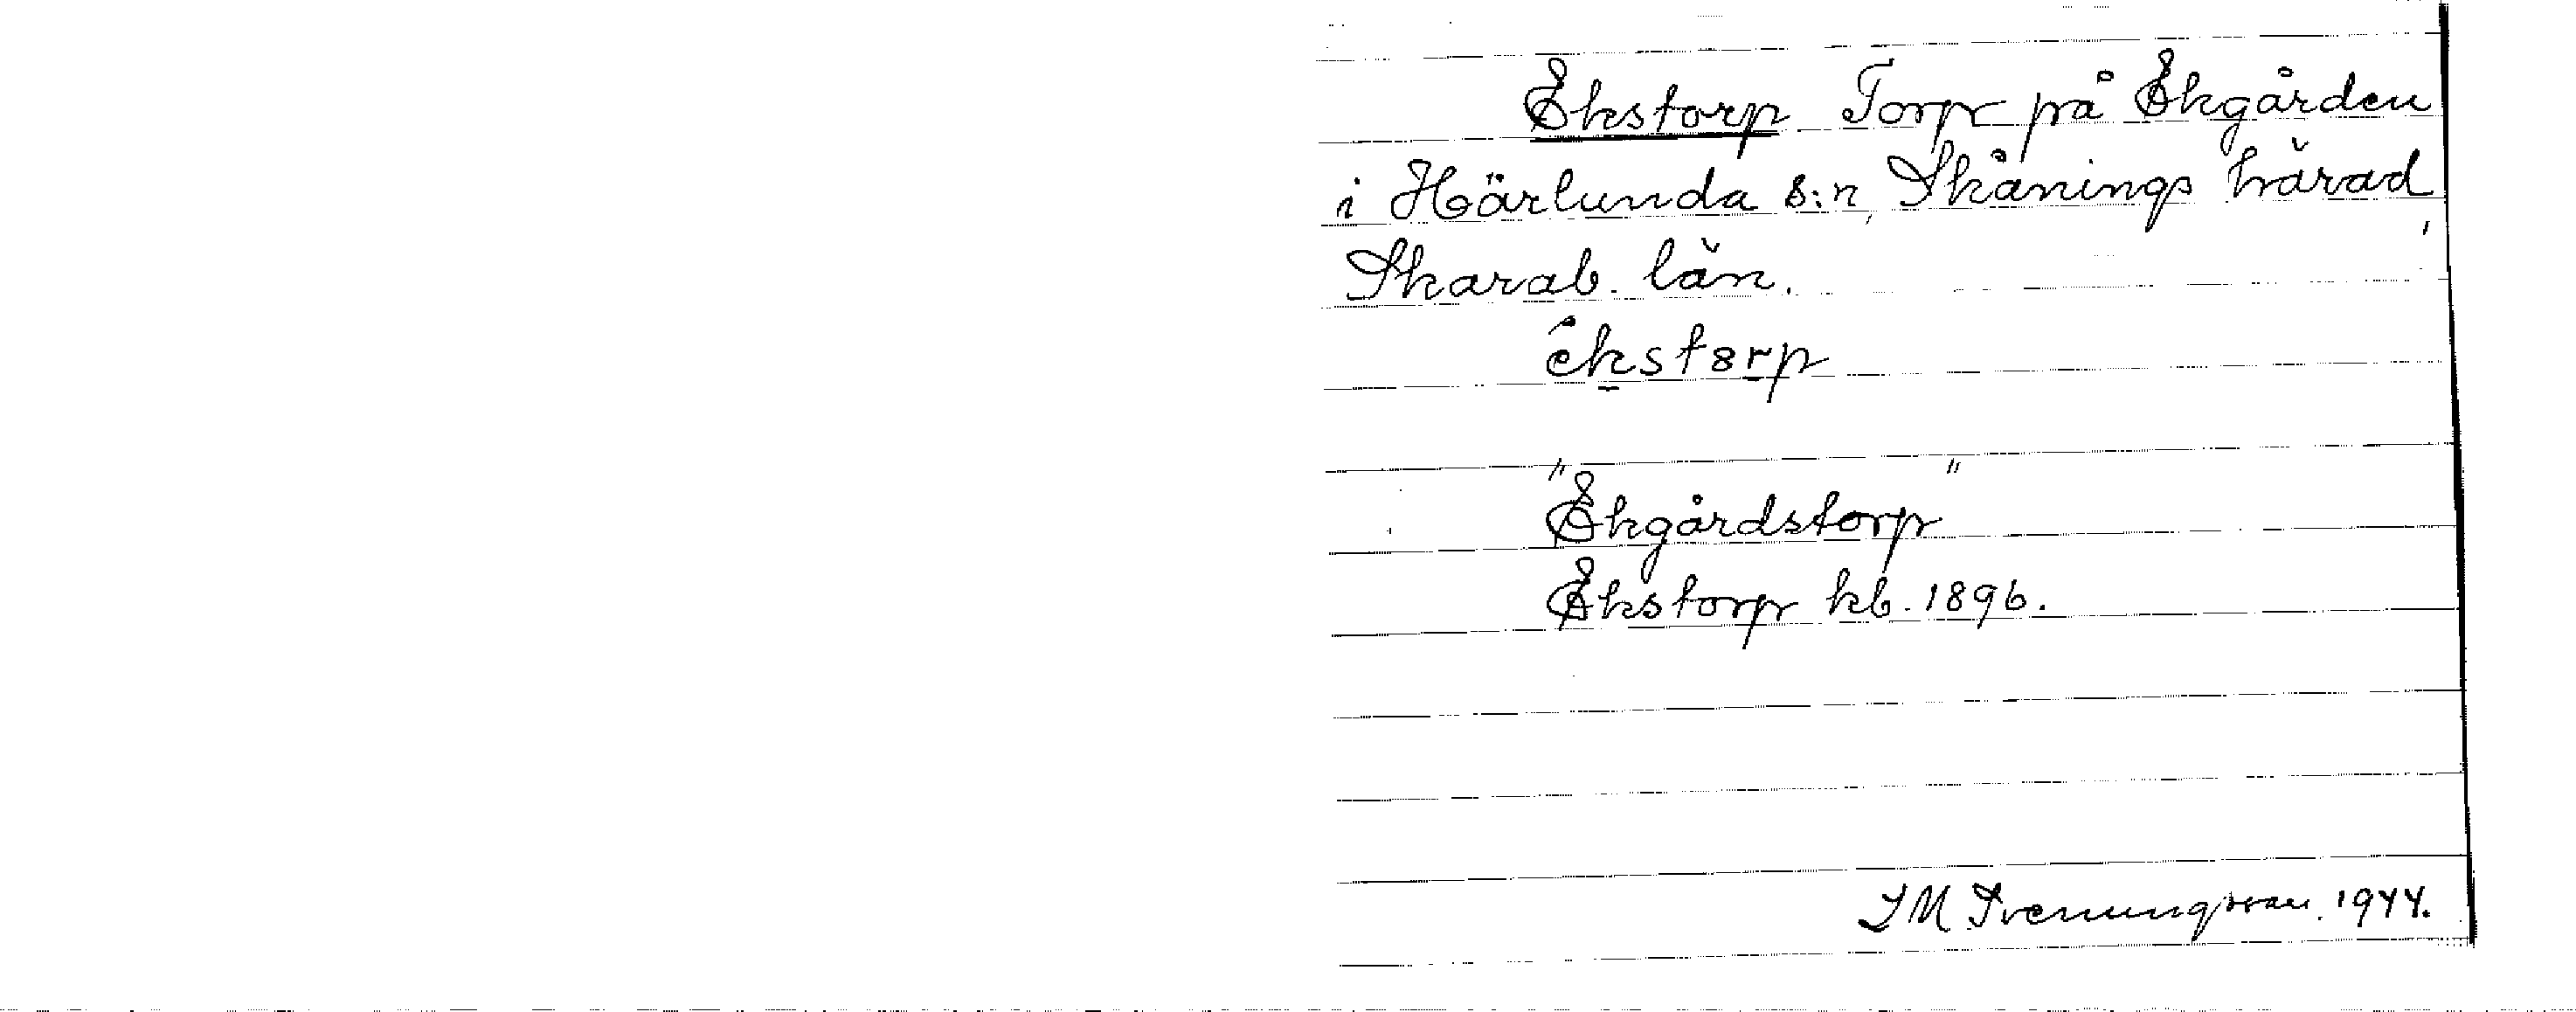 Ekstorp Torp på Ekgården
i Härlunda s:n, Skånings härad,
Skarab. län.
ékstorp
"Ekgårdstorp"
Ekstorp kb. 1896.
I M Svenungsson. 1944.